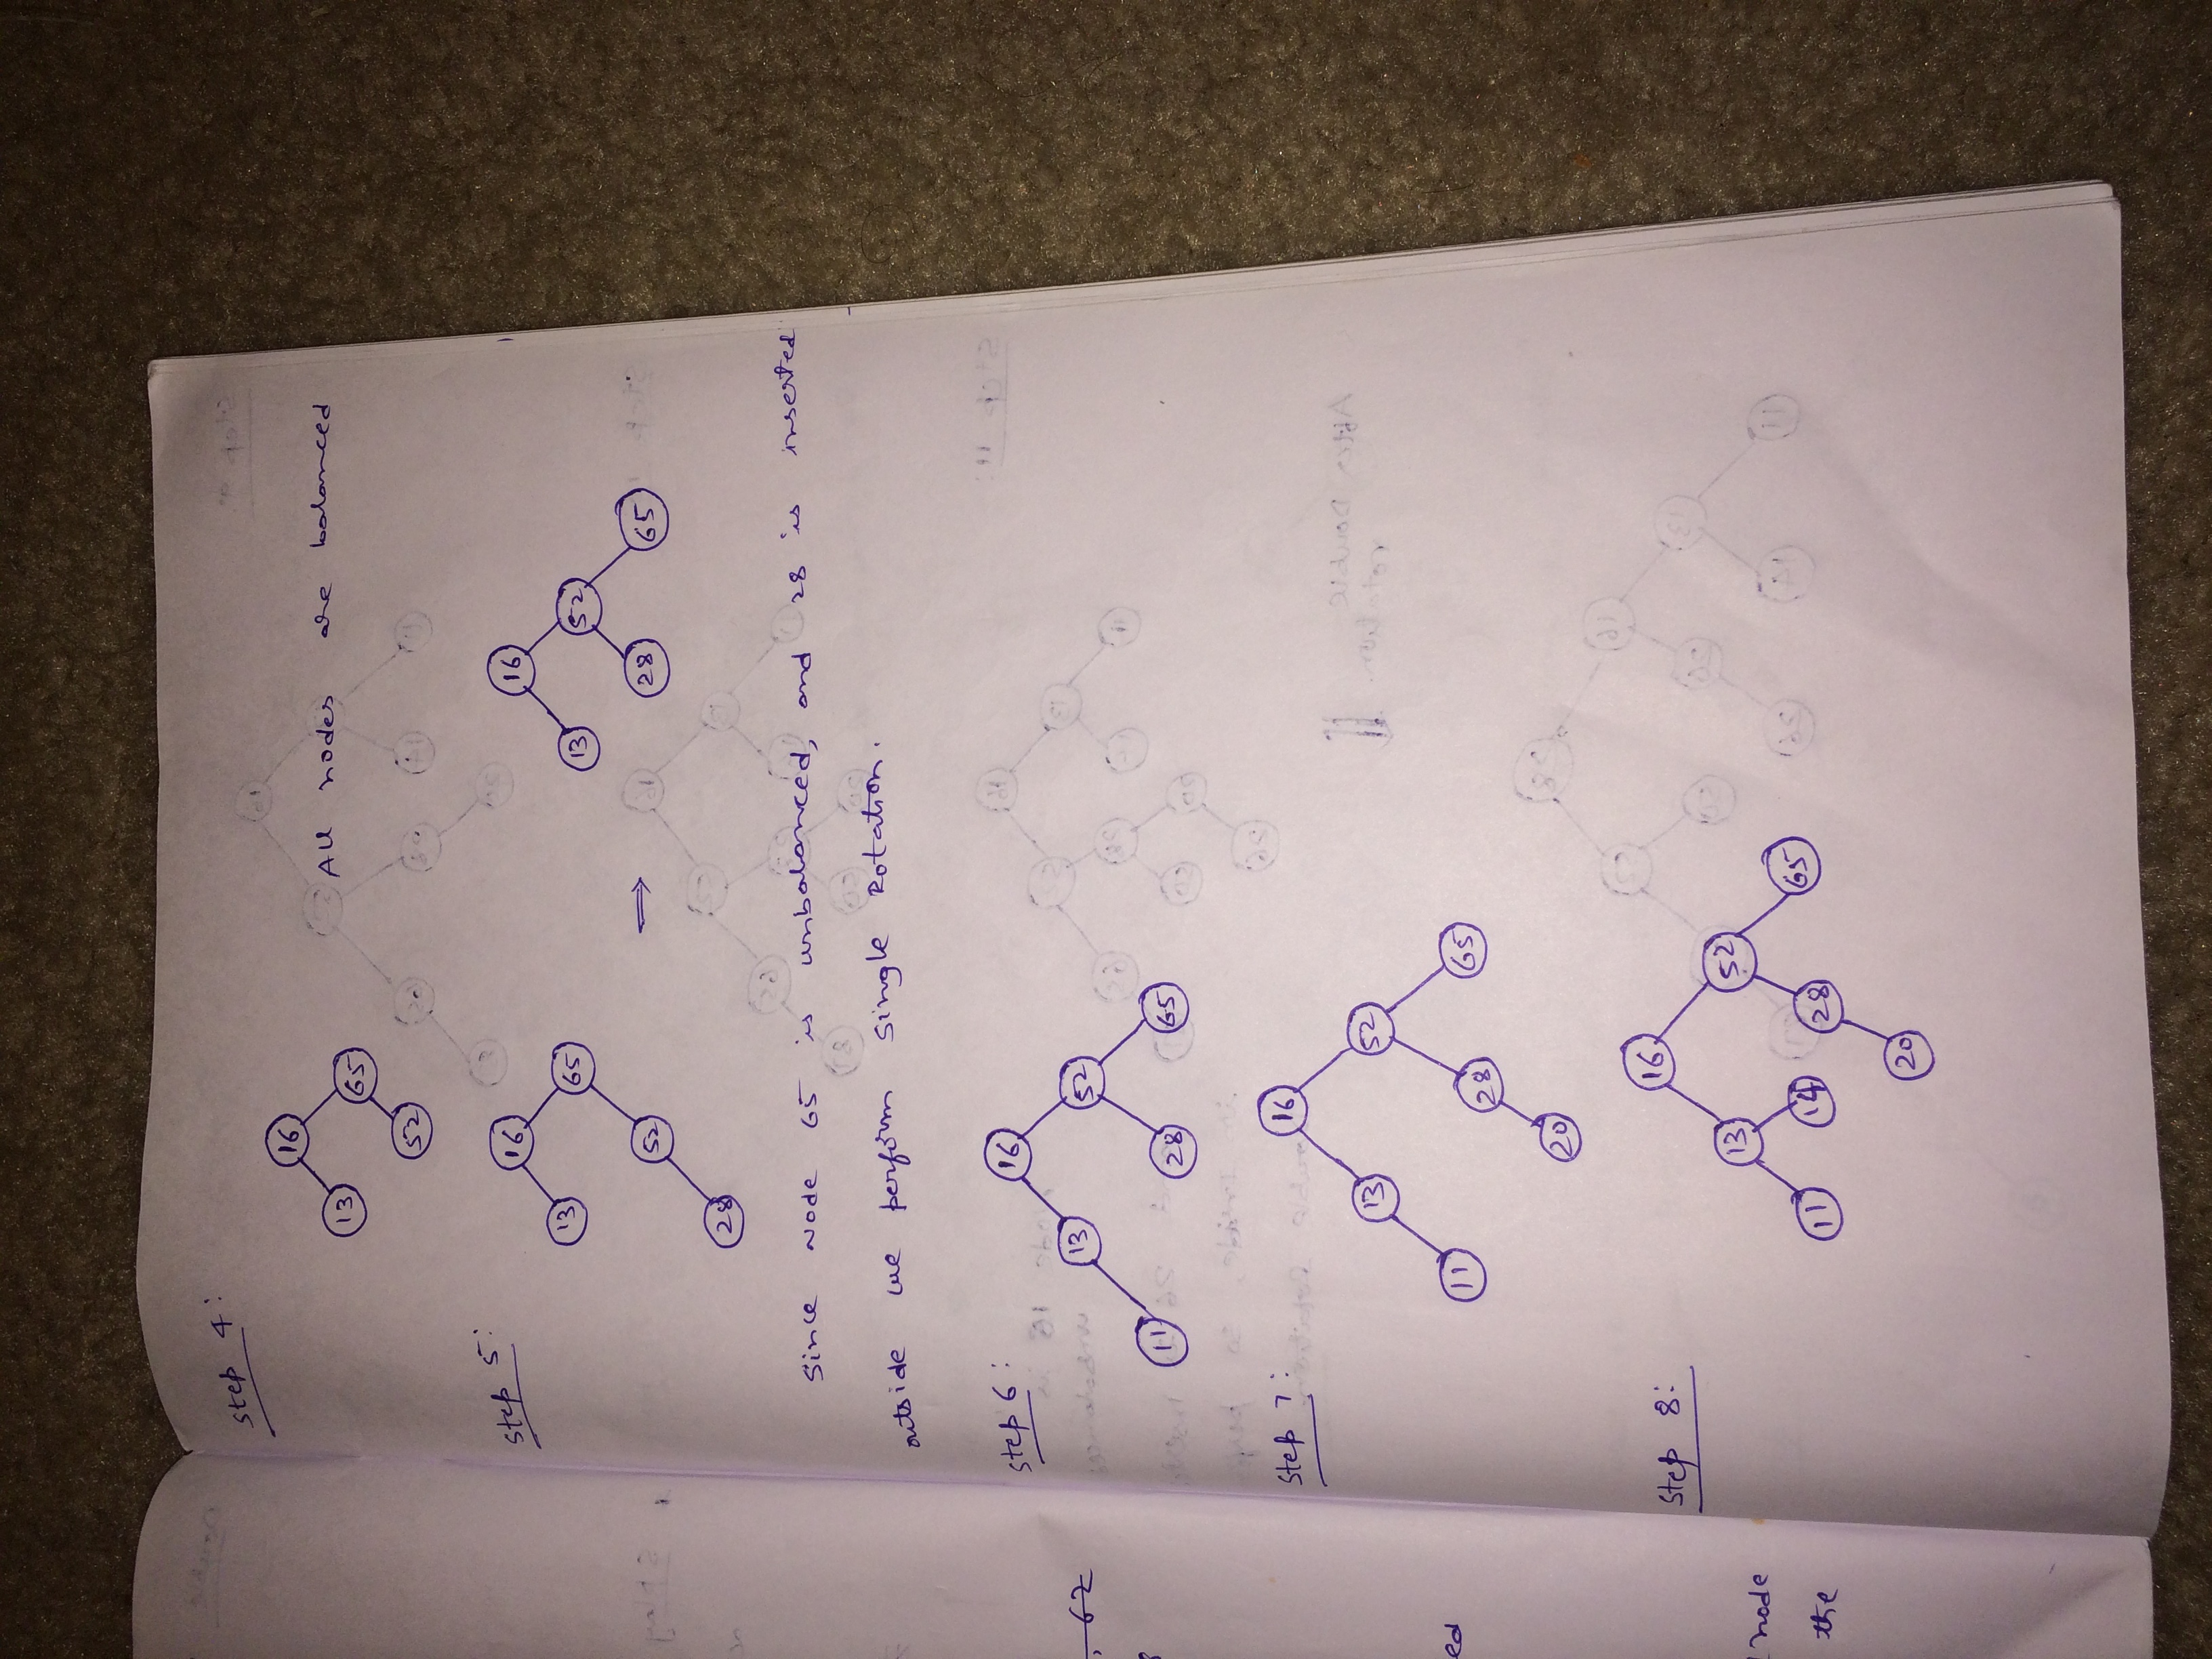 , 62
ed
node
the
Step 4:
16
13
65
52
All nodes are balanced
Step 5:
16
13
65
52
28
⇒
16
13
52
28
65
Since Node 65 is unbalanced, and 28 is inserted
outside we perform Single Rotation.
Step 6:
16
13
52
11
28
65
Step 7:
16
13
52
11
28
65
20
Step 8:
16
13
52
11
14
28
65
20